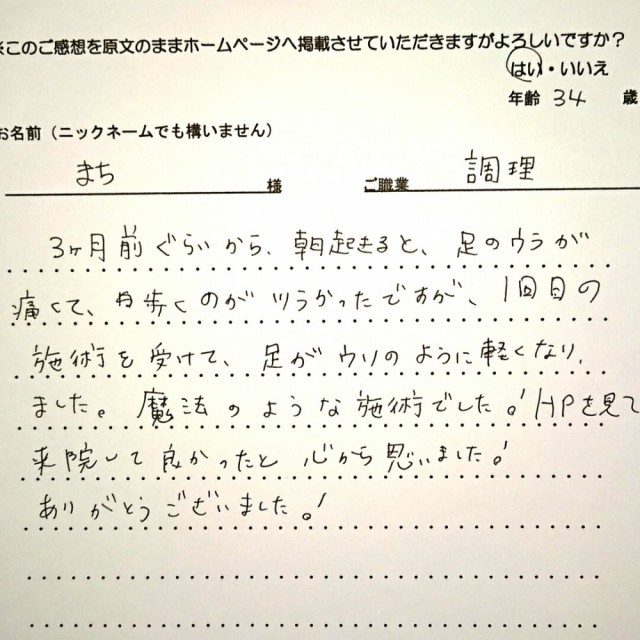 ※このご感想を原文のままホームページへ掲載させていただきますがよろしいですか？
はい・いいえ
年齢 34 歳
お名前（ニックネームでも構いません）
まち 様 ご職業 調理
3ヶ月前ぐらいから、朝起きると、足のウラが
痛くて、歩くのがツラかったですが、1回目の
施術を受けて、足がウソのように軽くなり、
ました。魔法のような施術でした。！HPを見て
来院して良かったと心から思いました。！
ありがとうございました。！